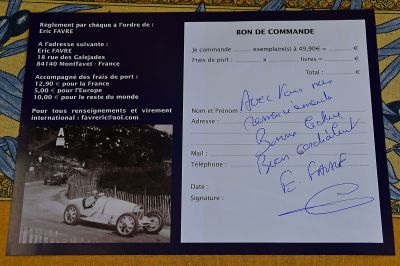 Règlement par chèque à l'ordre de :
Eric FAVRE
A l'adresse suivante :
Eric FAVRE
18 rue des Galejades
84140 Montfavet - France
Accompagné des frais de port :
12,90 € pour la France
5,00 € pour l'Europe
10,00 € pour le reste du monde
Pour tous renseignements et virement
international : favreric@aol.com
BON DE COMMANDE
Je commande ........ exemplaire(s) à 49,90€ = ........ €
Frais de port : ........ x ........ livres = ........ €
Total : ........ €
Nom et Prénom
Adresse :
Mail :
Téléphone :
Date :
Signature :
Avec tous mes
remerciements
Bonne lecture
Bien cordialement
E. FAVRE